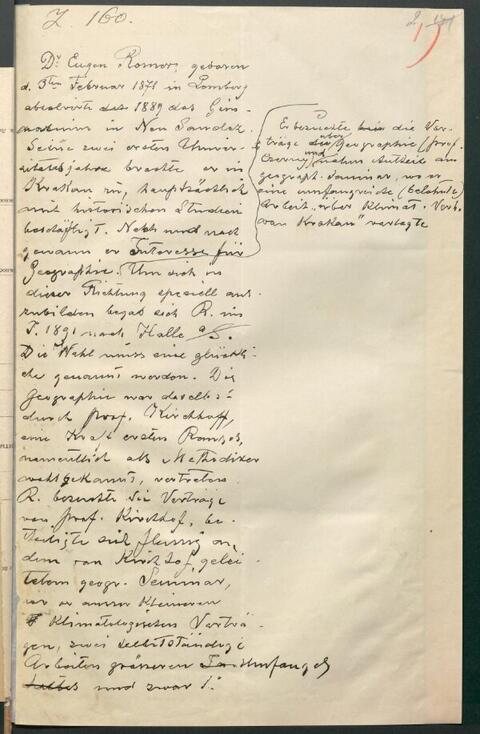 Z. 160.
Dr Eugen Romer, geboren
d. 3ten Februar 1871 in Lemberg
absolvirte des 1889 das Gym-
nasium in Neu Sandez.
Seine zwei ersten Univer-
sitätsjahre brachte er in
Krakau zu, hauptsächlich
mit historischen Studien
beschäftigt. Nach und nach
gewann er Interesse für
Geographie. Um sich in
dieser Richtung speciell aus-
zubilden begab sich R. im
J. 1891 nach Halle a/S.
Die Wahl muss eine glückli-
che genannt werden. Die
Geographie war daselbst
durch Prof. Kirchhoff,
eine Kraft ersten Ranges,
namentlich als Methodiker
wohlbekannt, vertreten.
R. besuchte die Vorträge
von Prof. Kirchhof, be-
theiligte sich fleissig an
dem von Kirchhof gelei-
tetem geogr. Seminar,
wo er ausser kleineren
klimatologischen Vorträ-
gen, zwei selbstständige
Arbeiten grösseren Umfanges
und zwar 1.
Er besuchte die Vor-
träge über Geographie (Prof.
Czerny) und nahm Antheil am
geograph. Seminar, wo er
eine umfangreiche (belobte)
Arbeit über Klimat. Verh.
von Krakau" vorlegte